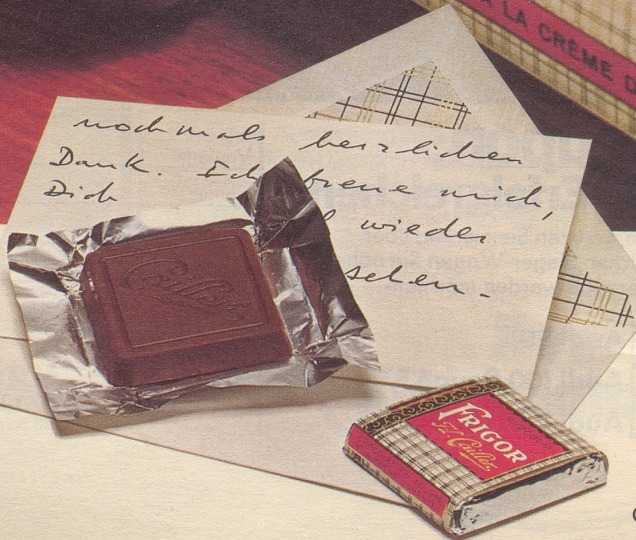 À LA CRÈME D
nochmals herzlichen
Dank. Ich freue mich,
Dich wieder
sehen.
Cailler
FRIGOR
F.L. Cailler